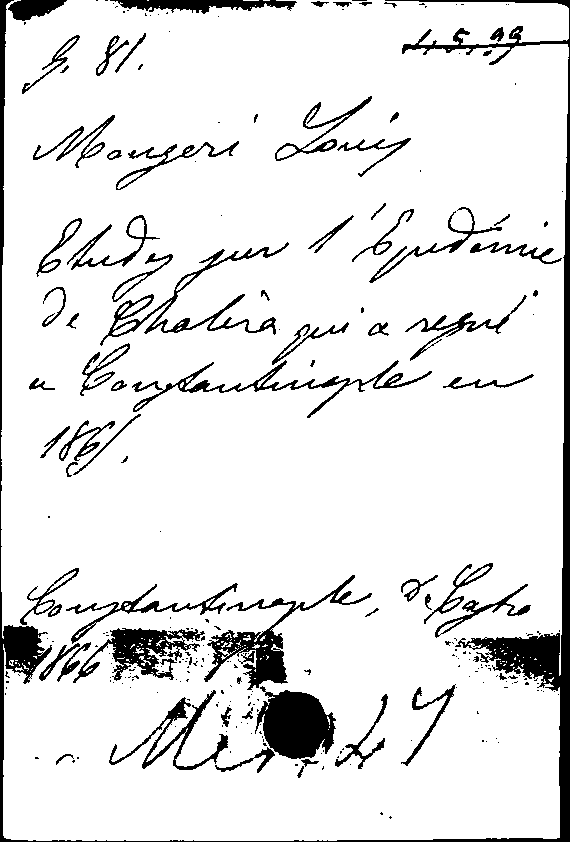 G. 81.
4.5.99
Mongeri Louis
Etudes sur l'Epidémie
de Choléra qui a regné
a Constantinople en
1865.
Constantinople, De Castro
1866